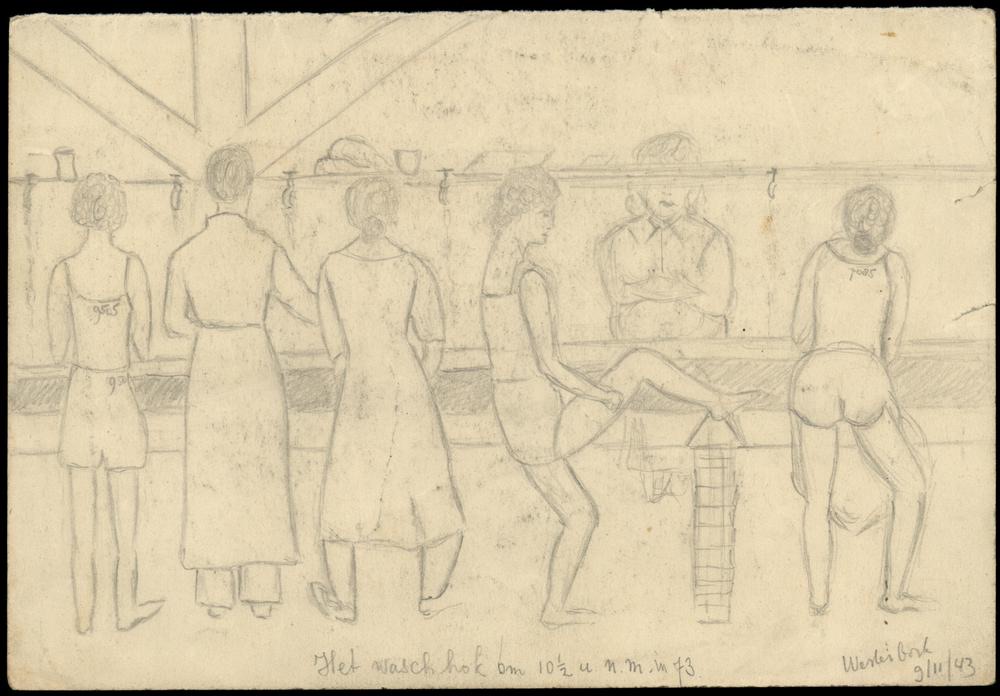 9565
95
7085
Het waschhok om 10½ u n.m. in 73.
Westerbork
9/11/43